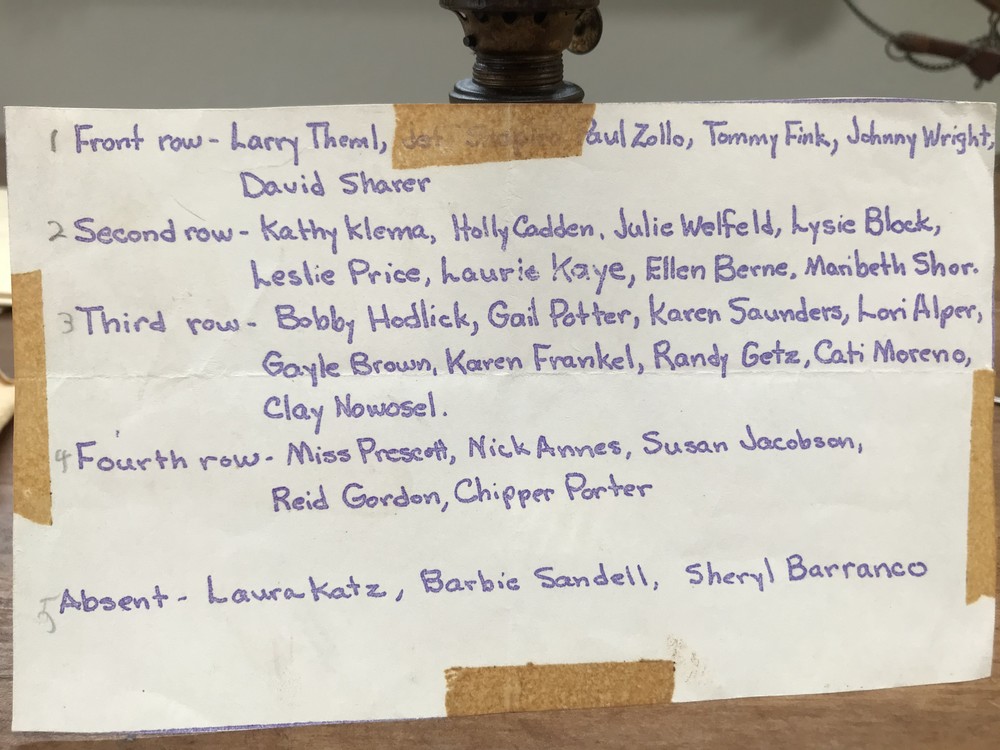 1 Front row - Larry Theml, Paul Zollo, Tommy Fink, Johnny Wright,
David Sharer
2 Second row - Kathy Klema, Holly Cadden, Julie Welfeld, Lysie Block,
Leslie Price, Laurie Kaye, Ellen Berne, Maribeth Shor.
3 Third row - Bobby Hodlick, Gail Potter, Karen Saunders, Lori Alper,
Gayle Brown, Karen Frankel, Randy Getz, Cati Moreno,
Clay Nowosel.
4 Fourth row - Miss Prescott, Nick Annes, Susan Jacobson,
Reid Gordon, Chipper Porter
5 Absent - Laura Katz, Barbie Sandell, Sheryl Barranco